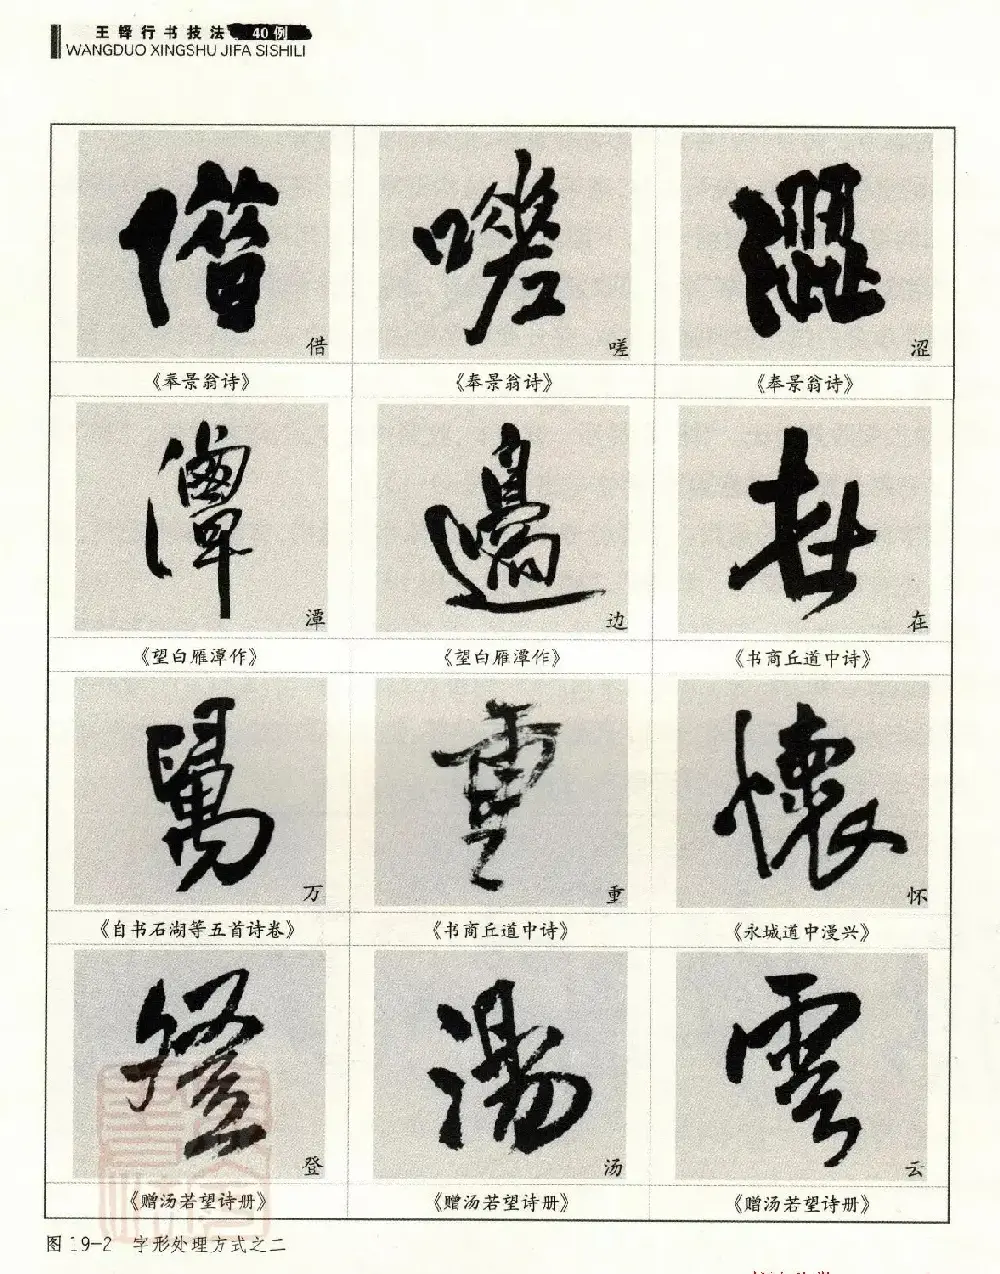 王铎行书技法 40例
WANGDUO XINGSHU JIFA SISHILI
借 嗟 涩
《奉景翁诗》 《奉景翁诗》 《奉景翁诗》
潭 边 在
《望白雁潭作》 《望白雁潭作》 《书商丘道中诗》
万 重 怀
《自书石湖等五首诗卷》 《书商丘道中诗》 《永城道中漫兴》
登 汤 云
《赠汤若望诗册》 《赠汤若望诗册》 《赠汤若望诗册》
图 19-2 字形处理方式之二